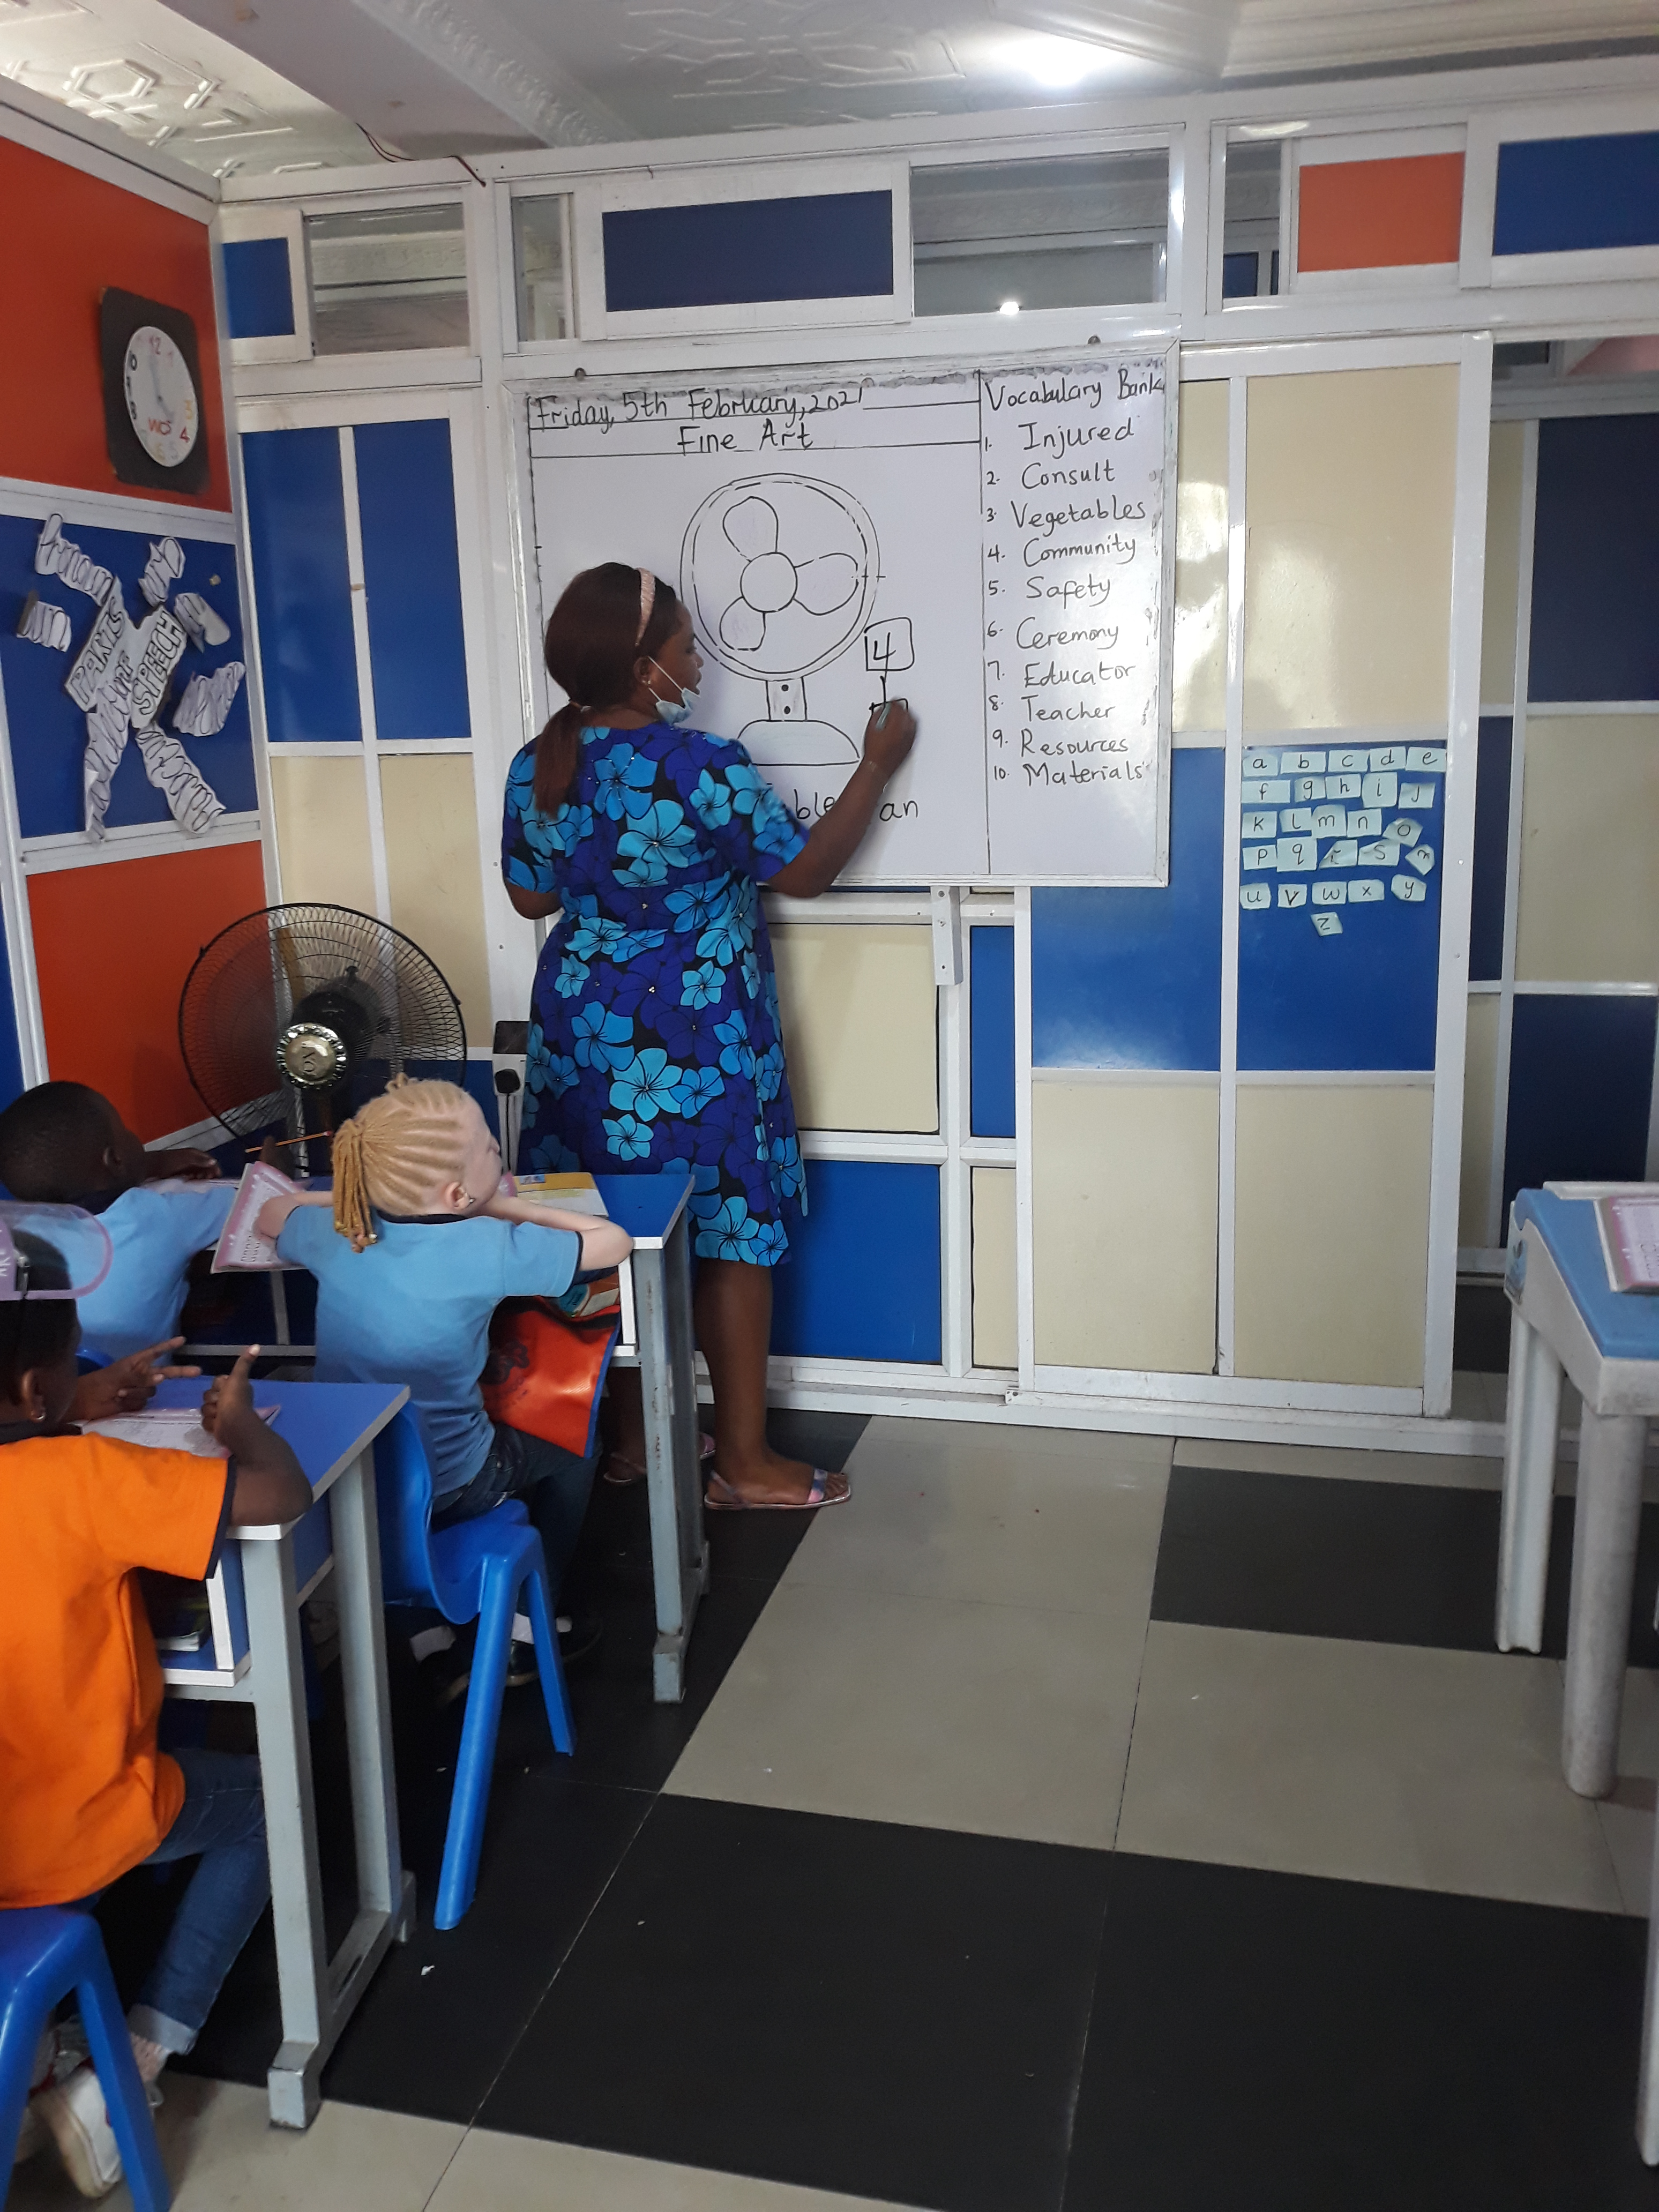 Friday, 5th February, 2021
Fine Art
4
ble
an
Vocabulary Bank
1. Injured
2. Consult
3. Vegetables
4. Community
5. Safety
6. Ceremony
7. Educator
8. Teacher
9. Resources
10. Materials
PARTS
OF
SPEECH
12
1
3
4
5
6
7
8
9
10
a b c d e
f g h i j
k l m n o
p q r s
u v w x y
z